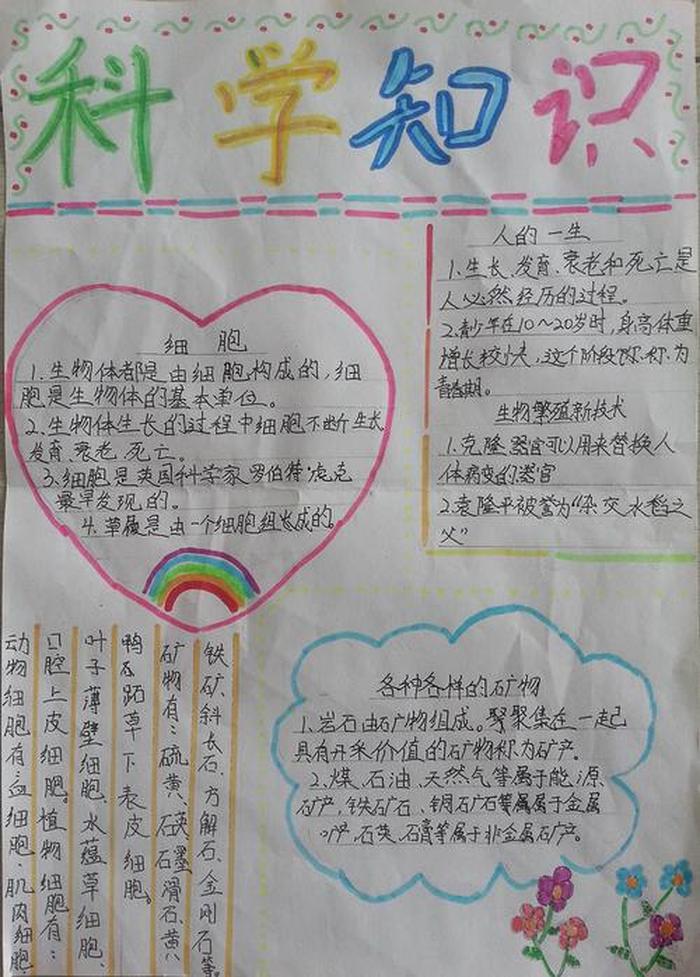 科学知识
细胞
1.生物体都是由细胞构成的,细
胞是生物体的基本单位。
2.生物体生长的过程中细胞不断生长
发育、衰老、死亡。
3.细胞是英国科学家罗伯特·虎克
最早发现的。
4.草履是由一个细胞组成的。
人的一生
1.生长、发育、衰老和死亡是
人必然经历的过程。
2.青少年在10～20岁时,身高体重
增长较快,这个阶段称为
青春期。
生物繁殖新技术
1.克隆器官可以用来替换人
体病变的器官
2.袁隆平被誉为“杂交水稻之
父”
动物细胞有:血细胞、肌肉细胞、
口腔上皮细胞。植物细胞有:
叶子薄壁细胞、水蕴草细胞、
鸭跖草下表皮细胞。
矿物有:硫黄、石英、石墨、滑石、黄
铁矿、斜长石、方解石、金刚石等。
各种各样的矿物
1.岩石由矿物组成。聚集在一起
具有开采价值的矿物称为矿产。
2.煤、石油、天然气等属于能源
矿产,铁矿石、铜矿石等属于金属
矿产,石英、石膏等属于非金属矿产。